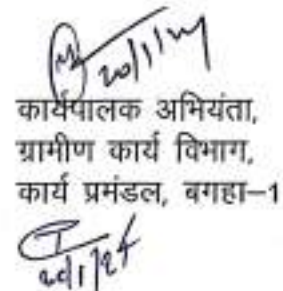 20/1/24
कार्यपालक अभियंता,
ग्रामीण कार्य विभाग,
कार्य प्रमंडल, बगहा–1
20/1/24